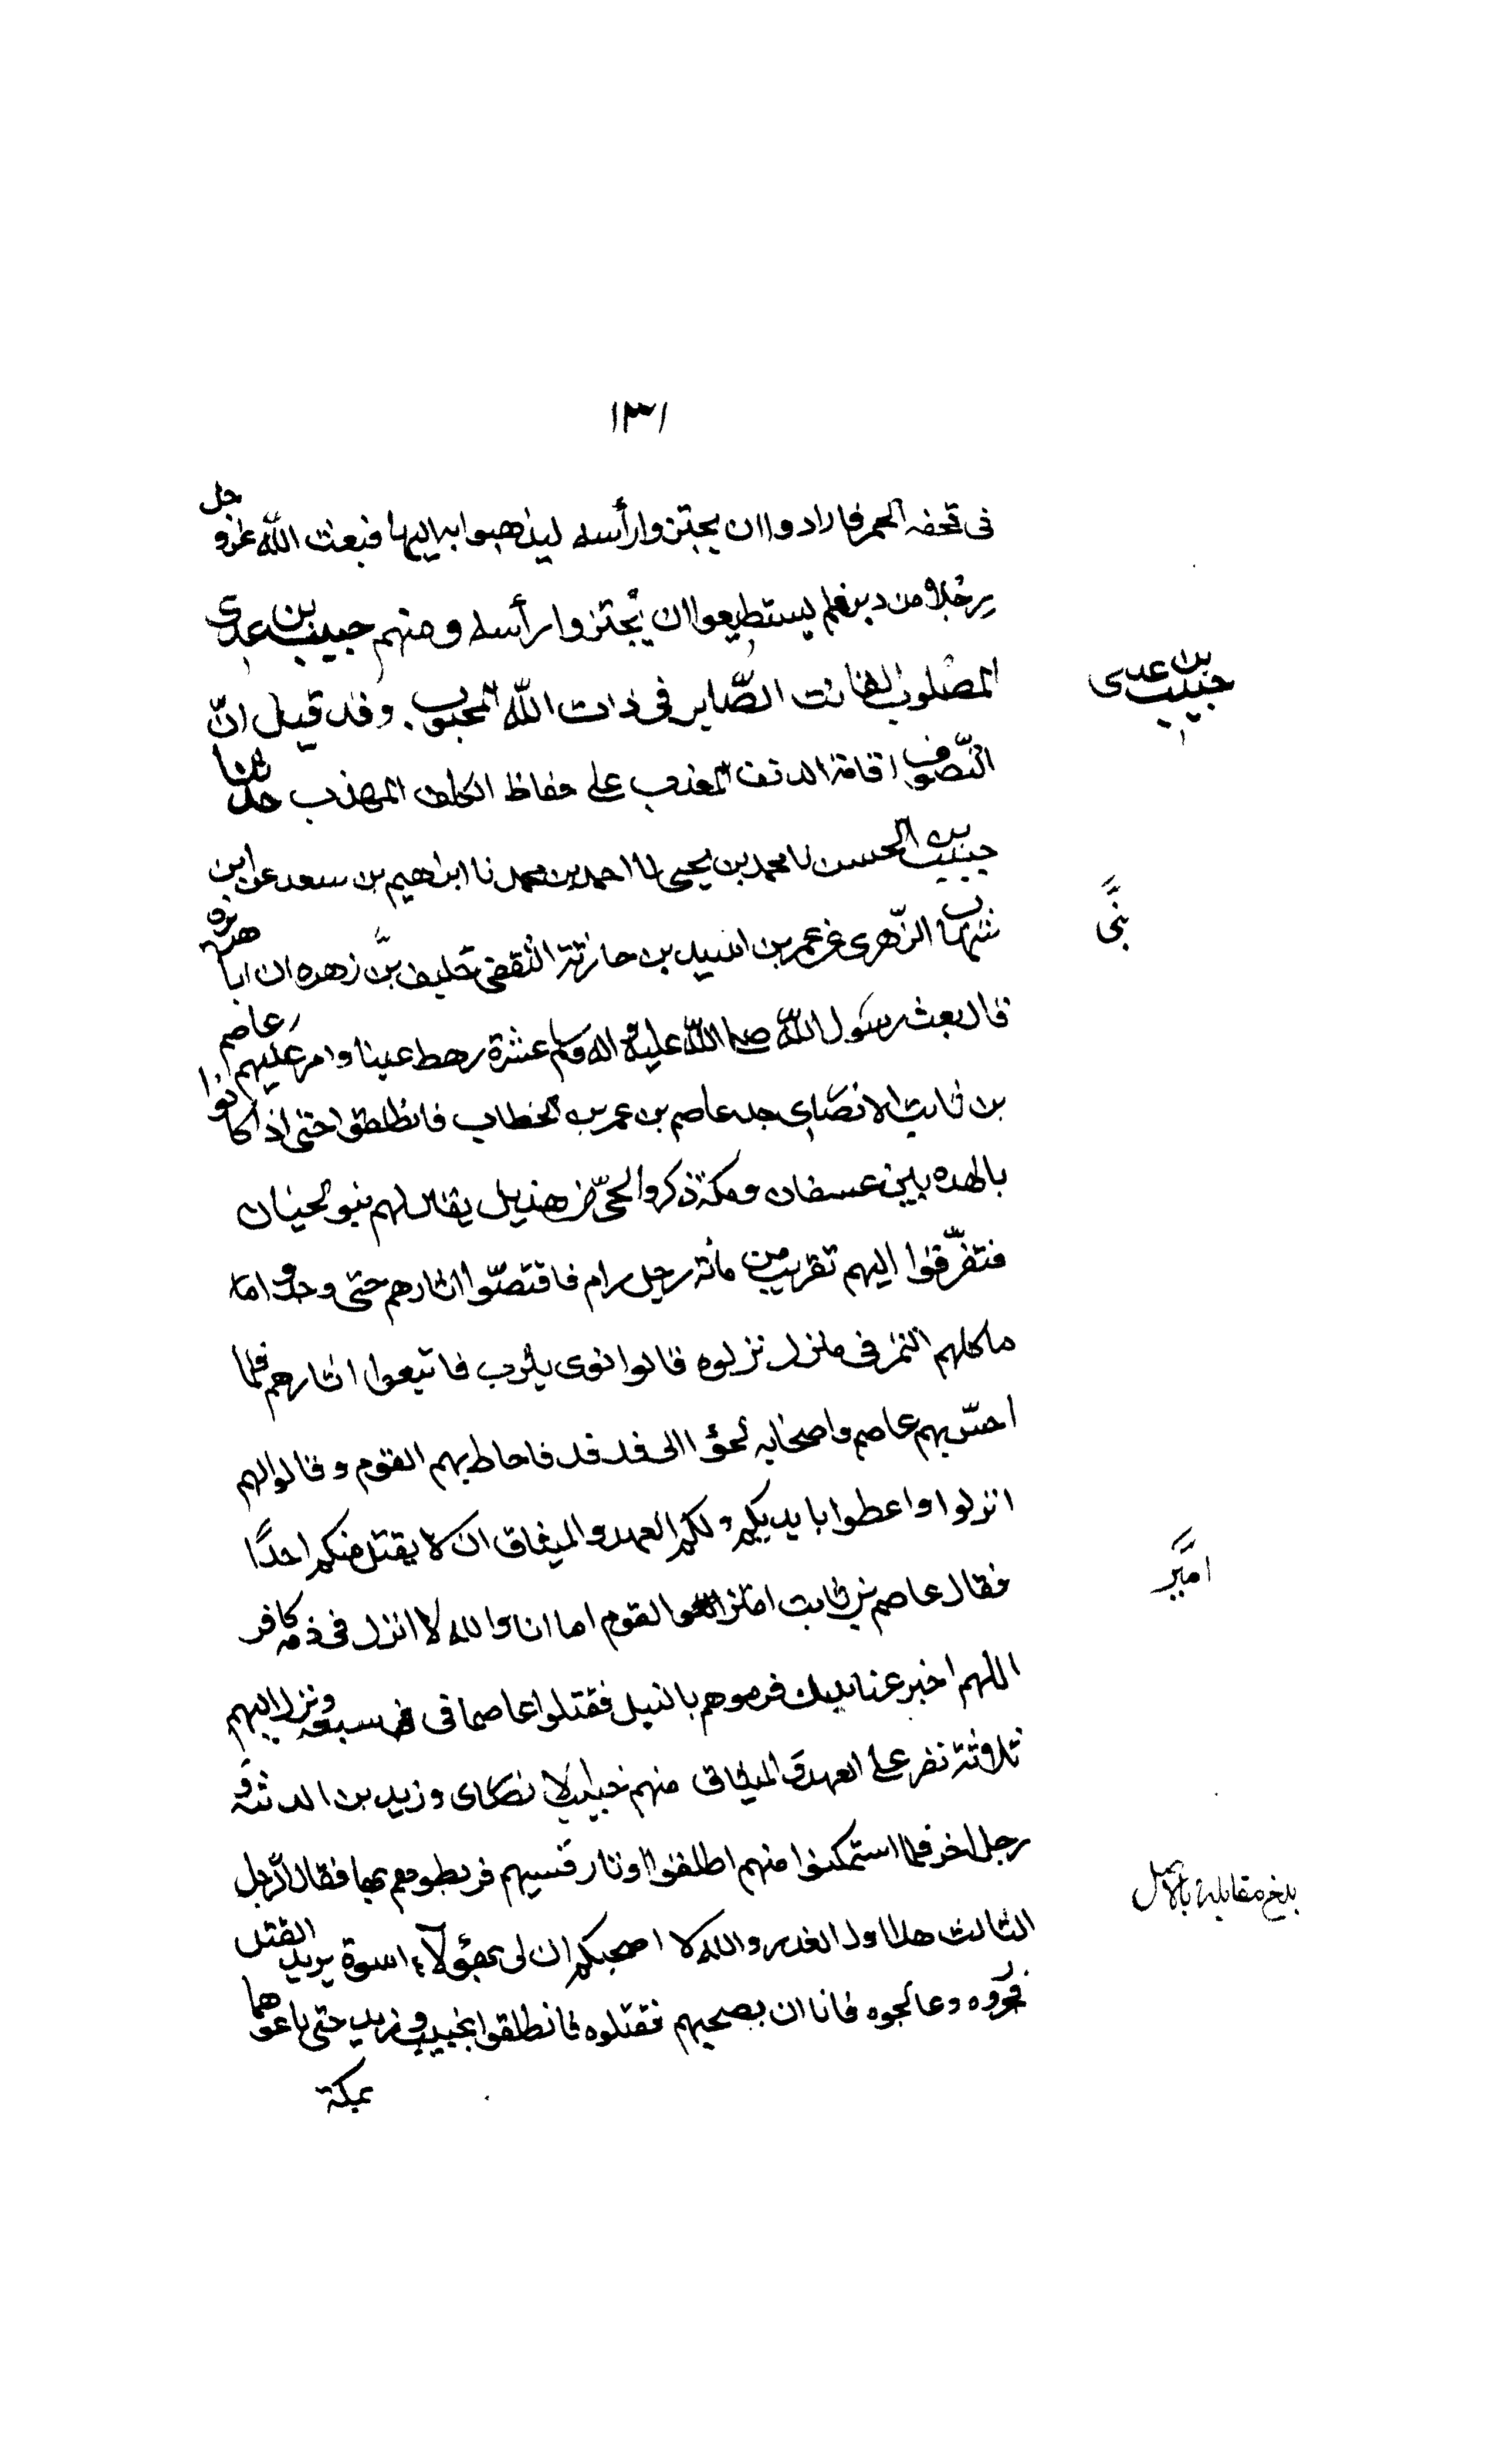 ١٣١
فى قحفه الخمر فارادوا ان يجتزوا رأسه ليذهبوا به اليها فبعث الله عز و جل
رجلا من دبر فلم يستطيعوا ان يجتزوا رأسه ومنهم خبيب بن عدى
المصلوب القانت الصّابر فى ذات الله المحبوب وقد قيل انّ
التّصوف اقامة الدنف المعذب على حفاظ الكلف المهذب حدثنا
حبيب بن الحسن نا محمد بن يحيى نا احمد بن محمد نا ابراهيم بن سعد عن ابن
شهاب الزّهرى عن عمر بن اسيد بن حارثة الثقفى حليف بنى زهره ان ابا هريره
قال بعث رسول الله صلى الله عليه و اله وسلم عشرة رهط عينا وامر عليهم عاصم
بن ثابت الانصارى جد عاصم بن عمر بن الخطاب فانطلقوا حتى اذا كانوا
بالهده بين عسفان ومكة ذكروا لحىّ من هذيل يقال لهم بنو لحيان
فتفرّقوا اليهم تقريب من مائة رجل رام فاقتصّوا اثارهم حتى وجدوا
ماكلهم التمر فى منزل نزلوه قالوا نوى يثرب فاتبعوا اثارهم فلما
احسّ بهم عاصم واصحابه لحقوا الى فدفد فاحاط بهم القوم وقالوا لهم
انزلوا واعطوا بايديكم ولكم العهد والميثاق ان لا يقتل منكم احدًا
فقال عاصم بن ثابت امير القوم اما انا والله لا انزل فى ذمه كافر
اللهم اخبر عنا نبيك فرموهم بالنبل فقتلوا عاصما فى سبعه ونزل اليهم
ثلاثة نفر على العهد و الميثاق منهم خبيب الانصارى وزيد بن الدثنه و
رجل اخر فلما استمكنوا منهم اطلقوا اوتار قسيهم فربطوهم بها فقال الرّجل
الثالث هذا اول الغدر والله لا اصحبكم ان لى بهؤلآء اسوة يريد القتل
فجروه وعالجوه فابا ان يصحبهم فقتلوه فانطلقوا بخبيب وزيد حتى باعوهما
بمكة
خبيب بن عدى
بنى
امير
بلغ مقابلة بالاصل